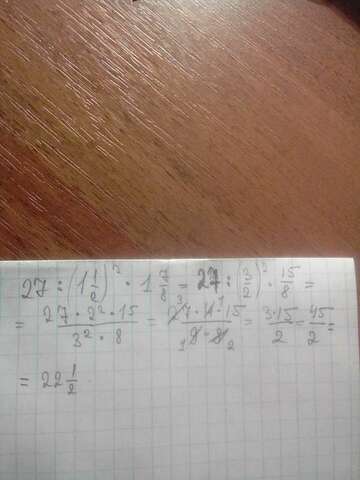 27 : (1 1/2)² · 1 7/8 = 27 : (3/2)² · 15/8 =
= 27 · 2² · 15 / 3² · 8 = 27 · 4 · 15 / 9 · 8 = 3·15 / 2 = 45/2 =
= 22 1/2